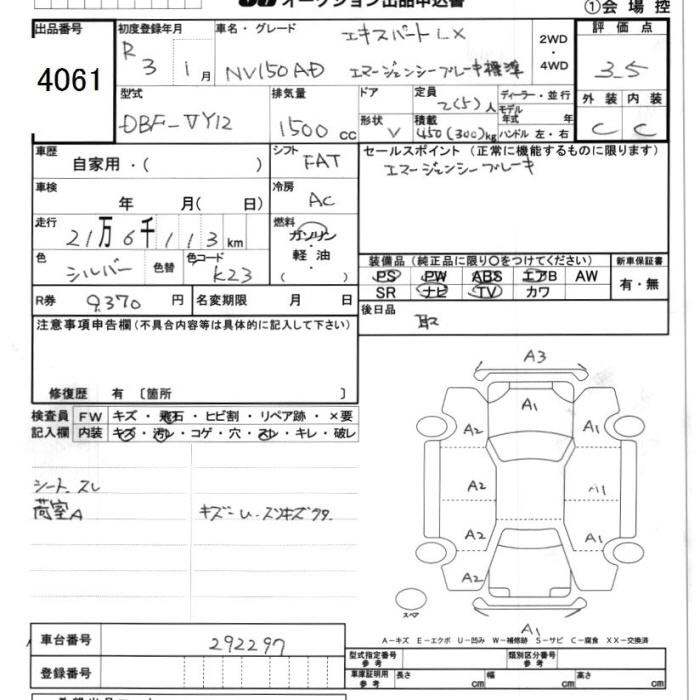 オークション出品申込書
①会場控
出品番号
4061
初度登録年月
R 3 1月
車名・グレード
エキスパートLX
NV150AD エマージェンシーブレーキ標準
2WD
・
4WD
評価点
3.5
外装 内装
C C
型式
DBF-VY12
排気量
1500 cc
ドア
形状
V
定員
2(5)人
積載
450(300)kg
ディーラー・並行
モデル
年式 年
ハンドル 左・右
車歴
自家用・( )
シフト
FAT
車検
年 月( 日)
冷房
AC
走行
21万6千113km
燃料
ガソリン
・
軽油
( )
色
シルバー
色替
色コード
K23
R券 9,370 円
名変期限 月 日
セールスポイント (正常に機能するものに限ります)
エマージェンシーブレーキ
装備品 (純正品に限り○をつけてください)
PS PW ABS エアB AW
SR ナビ TV カワ
新車保証書
有・無
後日品
取
注意事項申告欄(不具合内容等は具体的に記入して下さい)
修復歴 有〔箇所 〕
検査員
記入欄
FW キズ・飛石・ヒビ割・リペア跡・×要
内装 キズ・汚レ・コゲ・穴・スレ・キレ・破レ
シート スレ
荷室A
キズ
A3
A1
A2 A1
A2 A1
A2 A1
A2
A1
スペア
A-キズ E-エクボ U-凹み W-補修跡 S-サビ C-腐食 XX-交換済
車台番号
292297
登録番号
型式指定番号
参考
類別区分番号
参考
車庫証明用
参考
長さ cm 幅 cm 高さ cm